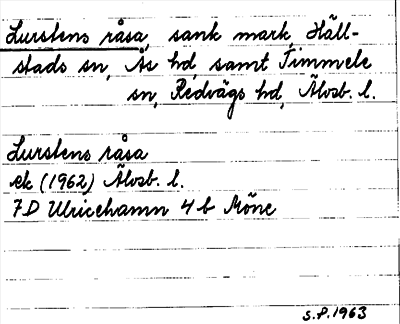 Lurstens råsa, sank mark, Häll-
stads sn, Ås hd samt Timmele
sn, Redvägs hd, Älvsb. l.
Lurstens råsa
ek (1962) Älvsb. l.
7D Ulricehamn 4 b Möne
S.P. 1963